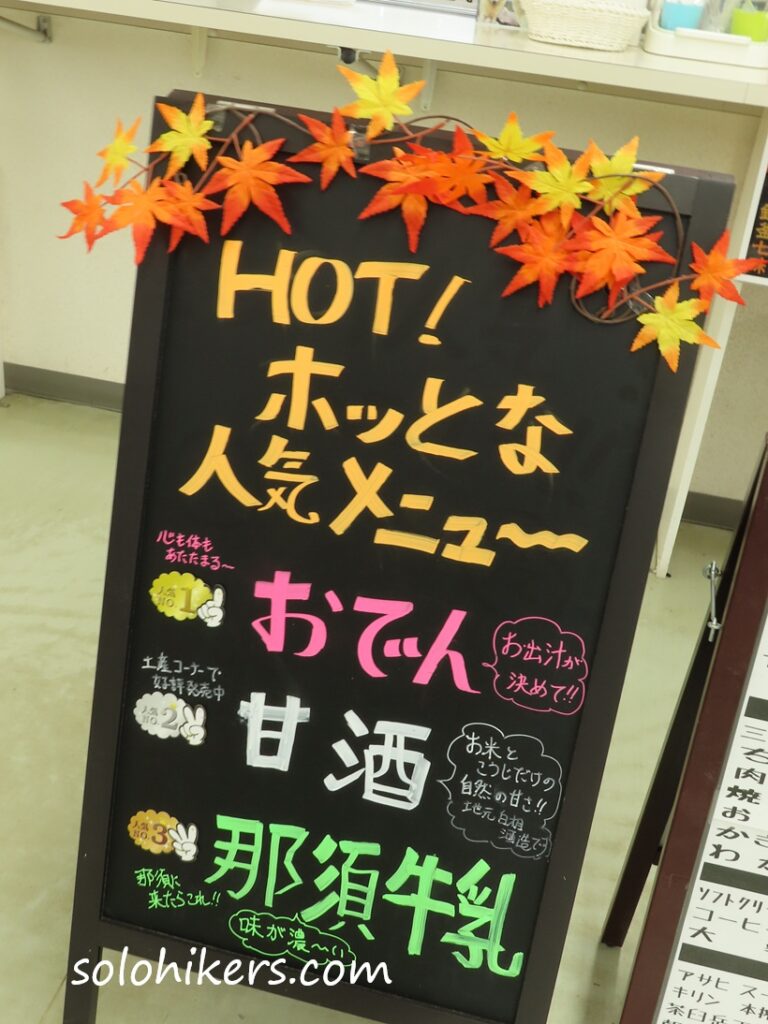 HOT!
ホッとな
人気メニュー
心も体も
あたたまる〜
人気
NO.1
おでん
お出汁が
決めて!!
土産コーナーで
好評発売中
人気
NO.2
甘酒
お米と
こうじだけの
自然の甘さ!!
地元白相
酒造です
人気
NO.3
那須牛乳
那須に
来たらこれ!!
味が濃〜い
solohikers.com
三
ち
肉
焼
お
かき
わか
ソフトクリー
コーヒ
大
アサヒ スー
キリン 本
茶臼岳